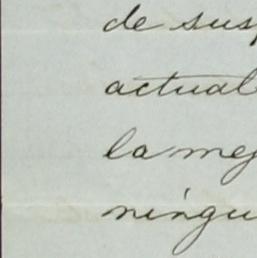 de sus
actual
la mej
ningu